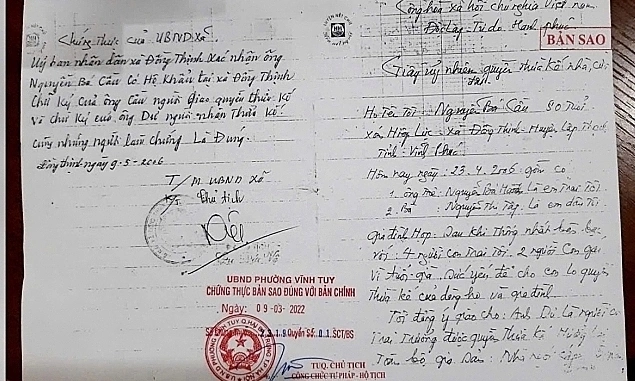 Chứng thực của UBND xã.
Uỷ ban nhân dân xã Đồng Thịnh xác nhận ông
Nguyễn Bá Cầu có Hộ Khẩu tại xã Đồng Thịnh
Chữ Ký của ông Cầu người giao quyền thừa kế
Và chữ ký của ông Dư người nhận Thừa Kế.
cùng những người làm chứng Là Đúng.
Đồng Thịnh ngày 9-5-2006
T/M UBND xã
Chủ tịch
UBND PHƯỜNG VĨNH TUY
CHỨNG THỰC BẢN SAO ĐÚNG VỚI BẢN CHÍNH
Ngày: 09-03-2022
Quyển Số: 01.SCT/BS
TUQ. CHỦ TỊCH
CÔNG CHỨC TƯ PHÁP - HỘ TỊCH
Cộng hòa xã hội chủ nghĩa Việt nam
Độc lập - Tự do - Hạnh phúc
BẢN SAO
Giấy uỷ nhiệm quyền thừa kế nhà,
Họ Tên Tôi - Nguyễn Bá Cầu 80 Tuổi
xã Đồng Thịnh - Huyện Lập Thạch
Tỉnh - Vĩnh Phúc
Hôm nay ngày: 23.4.2006 gồm có
1. ông Nguyễn Bá Là em Trai Tôi
2. Bà: Nguyễn Thị Là em dâu Tôi
gia đình Họp. Sau khi Thống nhất
với: 4 người con Trai Tôi. 2 người con gái
Vì Tuổi già. Sức yếu để cho con lo quyền
Thừa kế của dòng họ và gia đình
Tôi đồng ý giao cho: Anh Dư Là người con
Trai Trưởng được quyền Thừa kế